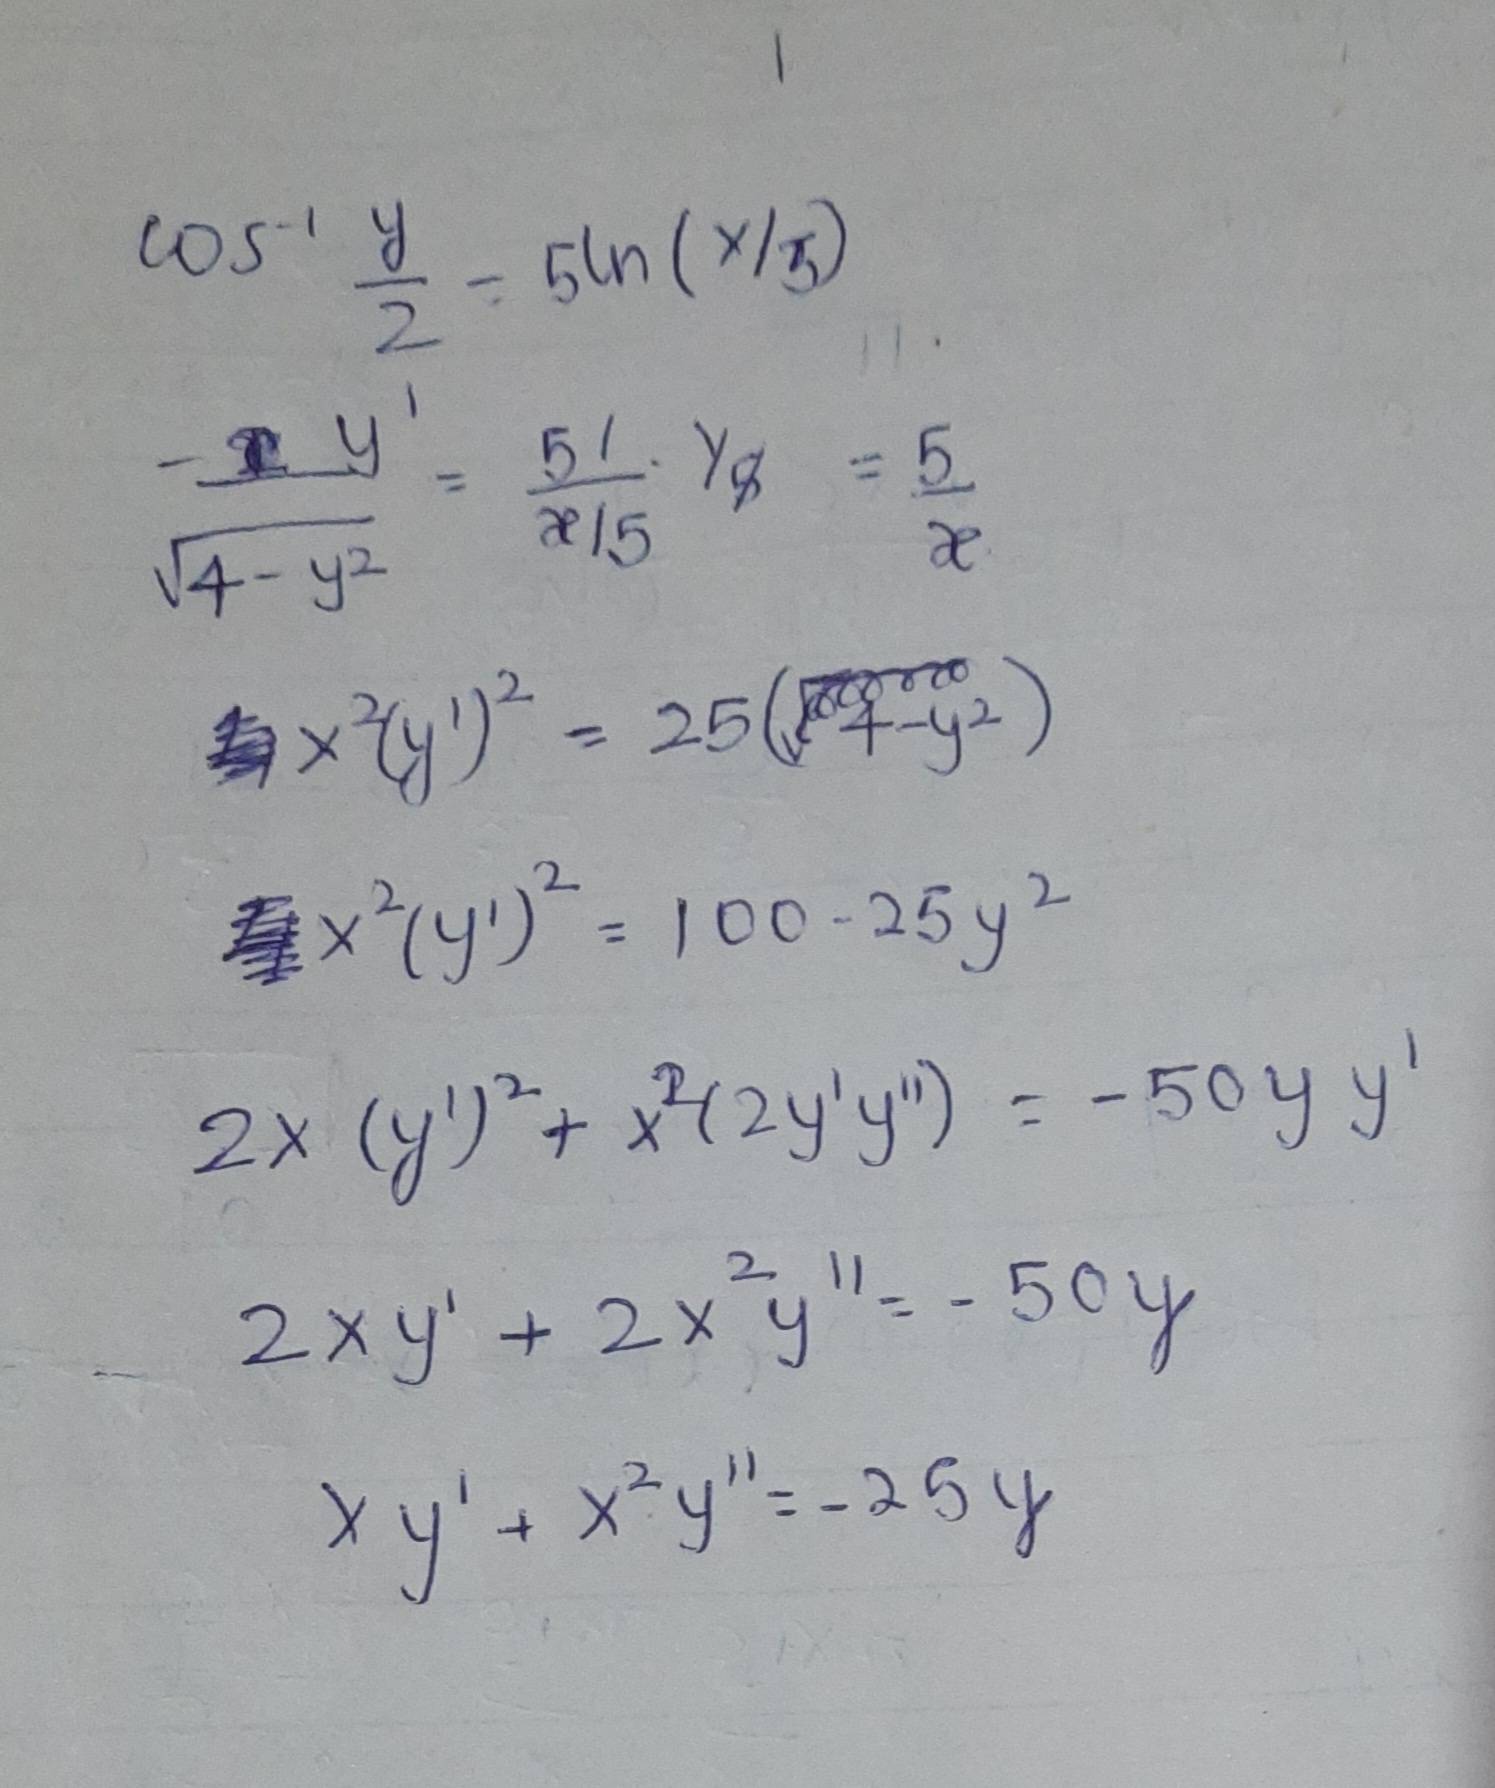 cos⁻¹ y/2 = 5ln(x/5)
-y'/√(4-y²) = 5 1/(x/5) · 1/5 = 5/x
x²(y')² = 25(4-y²)
x²(y')² = 100-25y²
2x(y')² + x²(2y'y'') = -50yy'
2xy' + 2x²y'' = -50y
xy' + x²y'' = -25y